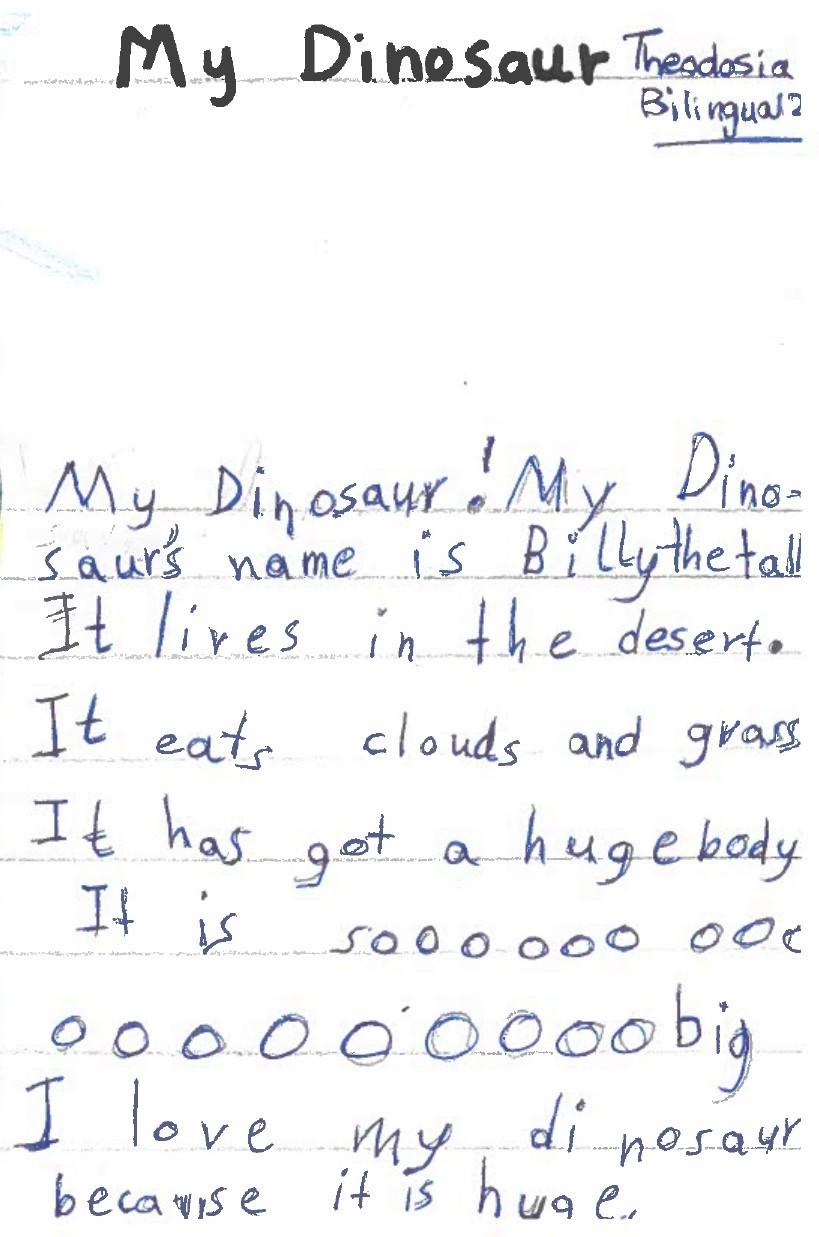 My Dinosaur
Theodosia
Bilingual 2
My Dinosaur! My Dino-
saur's name is Billythetall
It lives in the desert.
It eats clouds and grass
It has got a huge body
It is sooooooo ooo
ooooooooo big
I love my dinosaur
because it is huge.